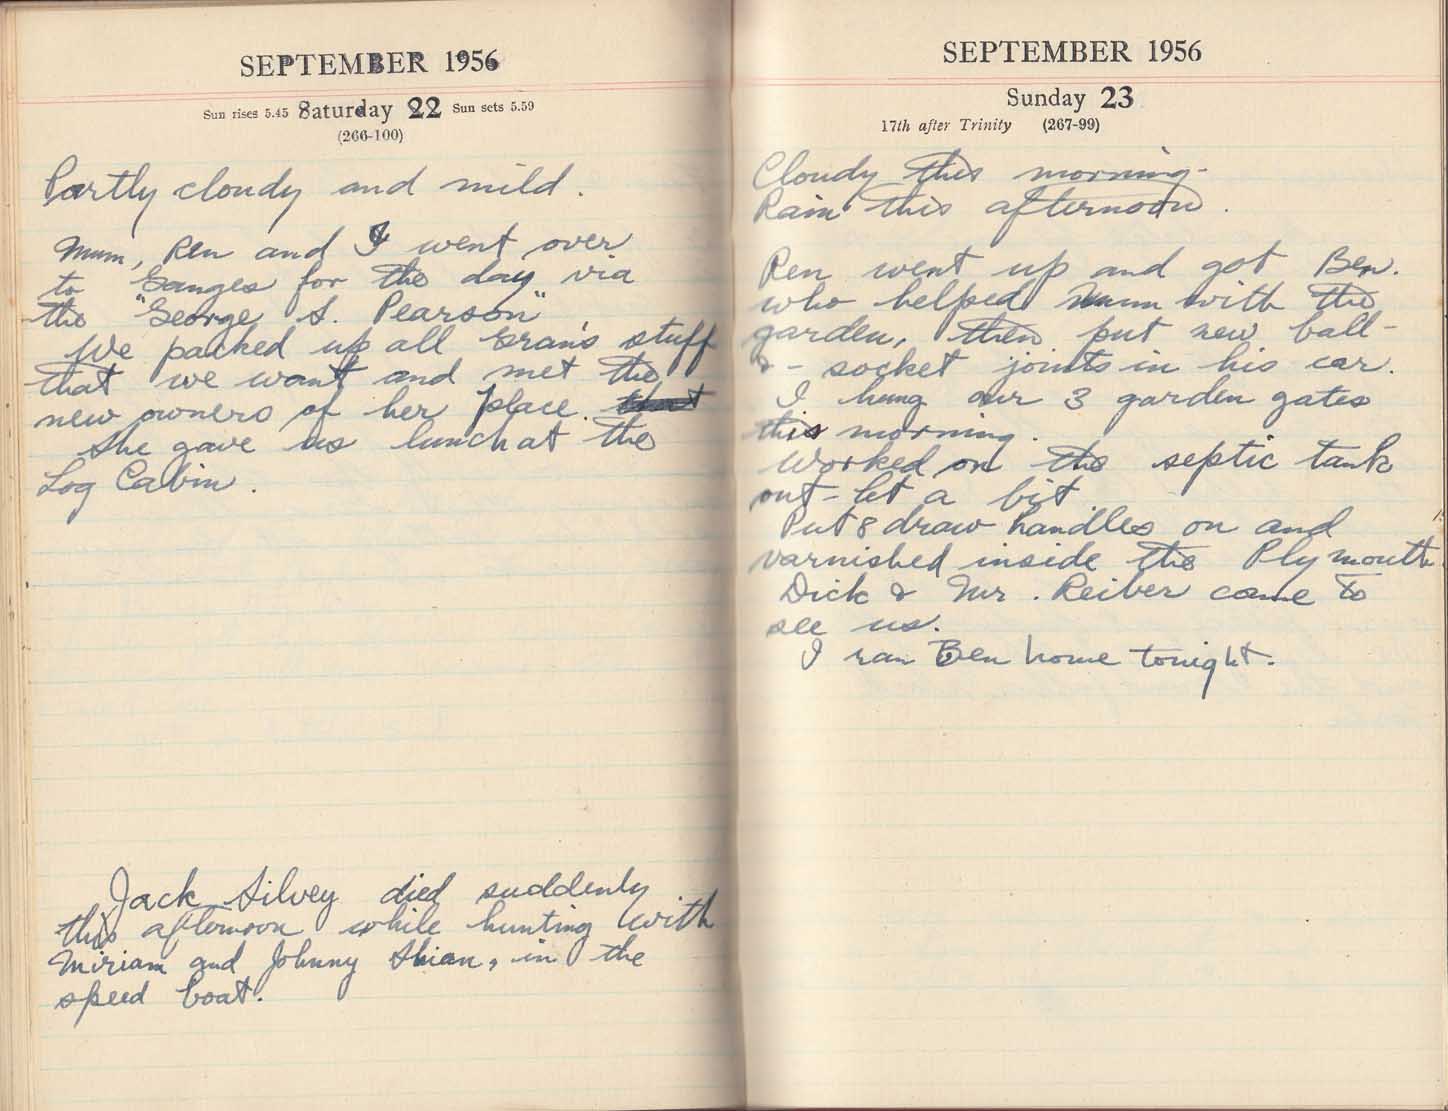 SEPTEMBER 1956
Sun rises 5.45 Saturday 22 Sun sets 5.59
(266-100)
Partly cloudy and mild.
Mum, Ren and I went over
to Ganges for the day via
the "George S. Pearson"
We packed up all Gran's stuff
that we want and met the
new owners of her place.
She gave us lunch at the
Log Cabin.
Jack Silvey died suddenly
this afternoon while hunting with
Miriam and Johnny, in the
speed boat.
SEPTEMBER 1956
Sunday 23
17th after Trinity (267-99)
Cloudy this morning-
Rain this afternoon.
Ren went up and got Ben.
who helped Mum with the
garden, then put new ball-
& - socket joints in his car.
I hung our 3 garden gates
this morning.
Worked on the septic tank
out-let a bit
Put 8 draw handles on and
varnished inside the Plymouth.
Dick & Mr. Reiber came to
see us.
I ran Ben home tonight.